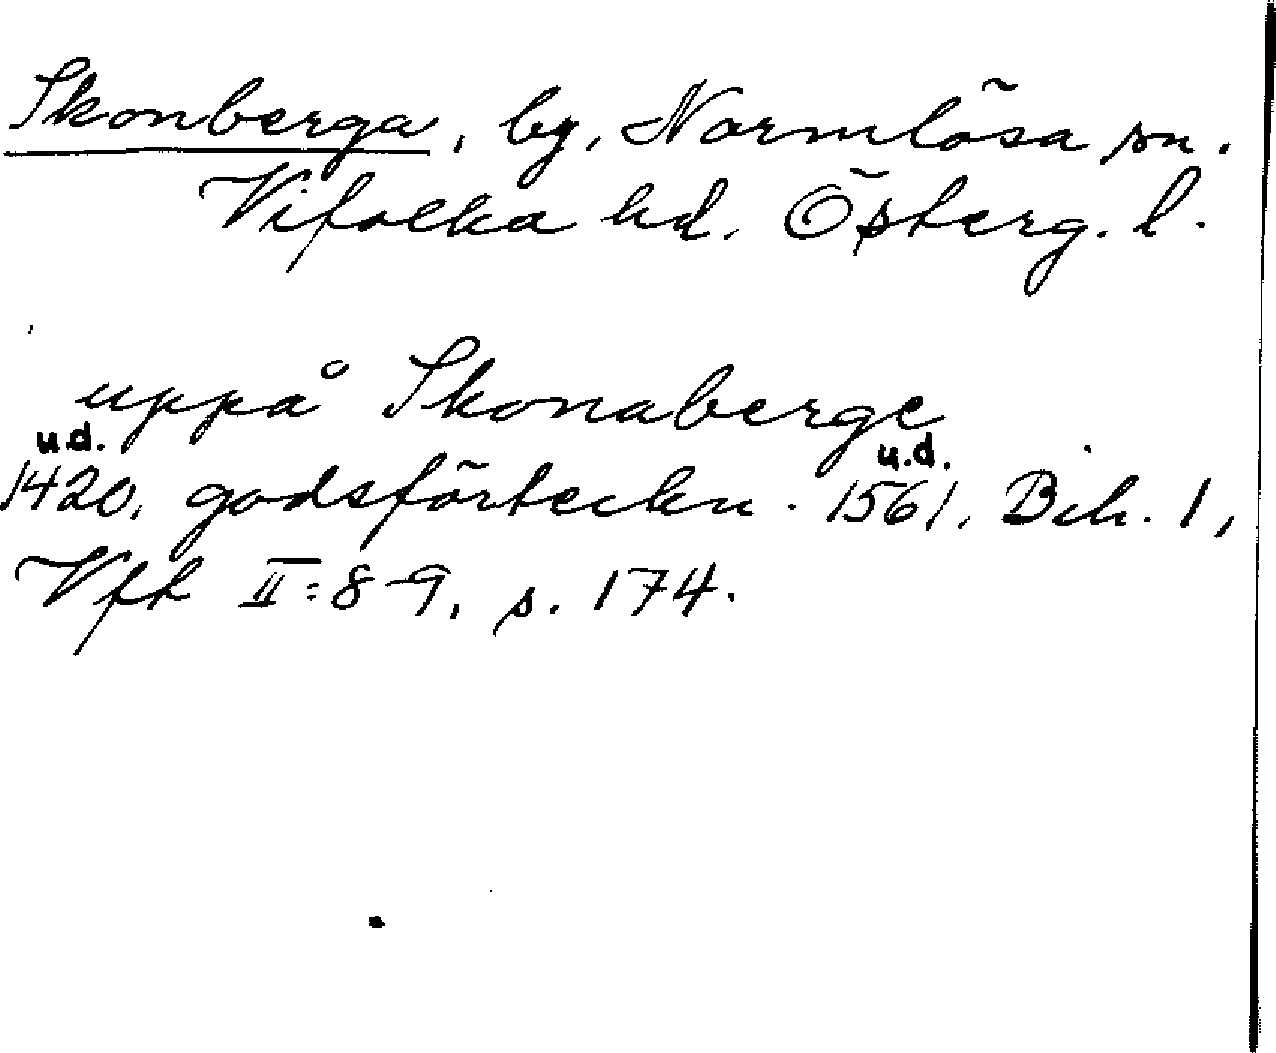 Skonberga, by, Normlösa sn.
Vifolka hd. Österg. l.
uppå Skonaberge
u.d. u.d.
1420, godsförteckn. 1561, Bih. 1,
Vfk II:8-9, s. 174.